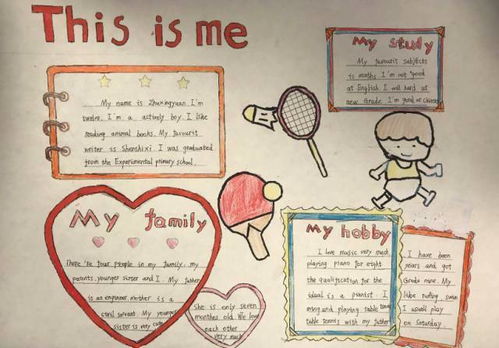 This is me
My name is Zhuxingyuan. I'm
twelve. I'm a actively boy. I like
reading animal books. My favourit
writer is Shenshixi. I was graduated
from the Experimental primary school.
My study
My favourit subjects
is maths. I'm not good
at English. I will hard at
new Grade. I'm good at Chinese
My family
There're four people in my family, my
parents, younger sister and I. My father
is an engineer, mother is a
civil servant. My younger
sister is very cute
She is only seven
monthes old. We love
each other
very much
My hobby
I love music very much
playing piano for eight
the qualification for the
ideal is a pianist. I
and playing table tennis
table tennis with my father
I have been
years and got
Grade nine. My
like swim
I usuall play
on Saturday